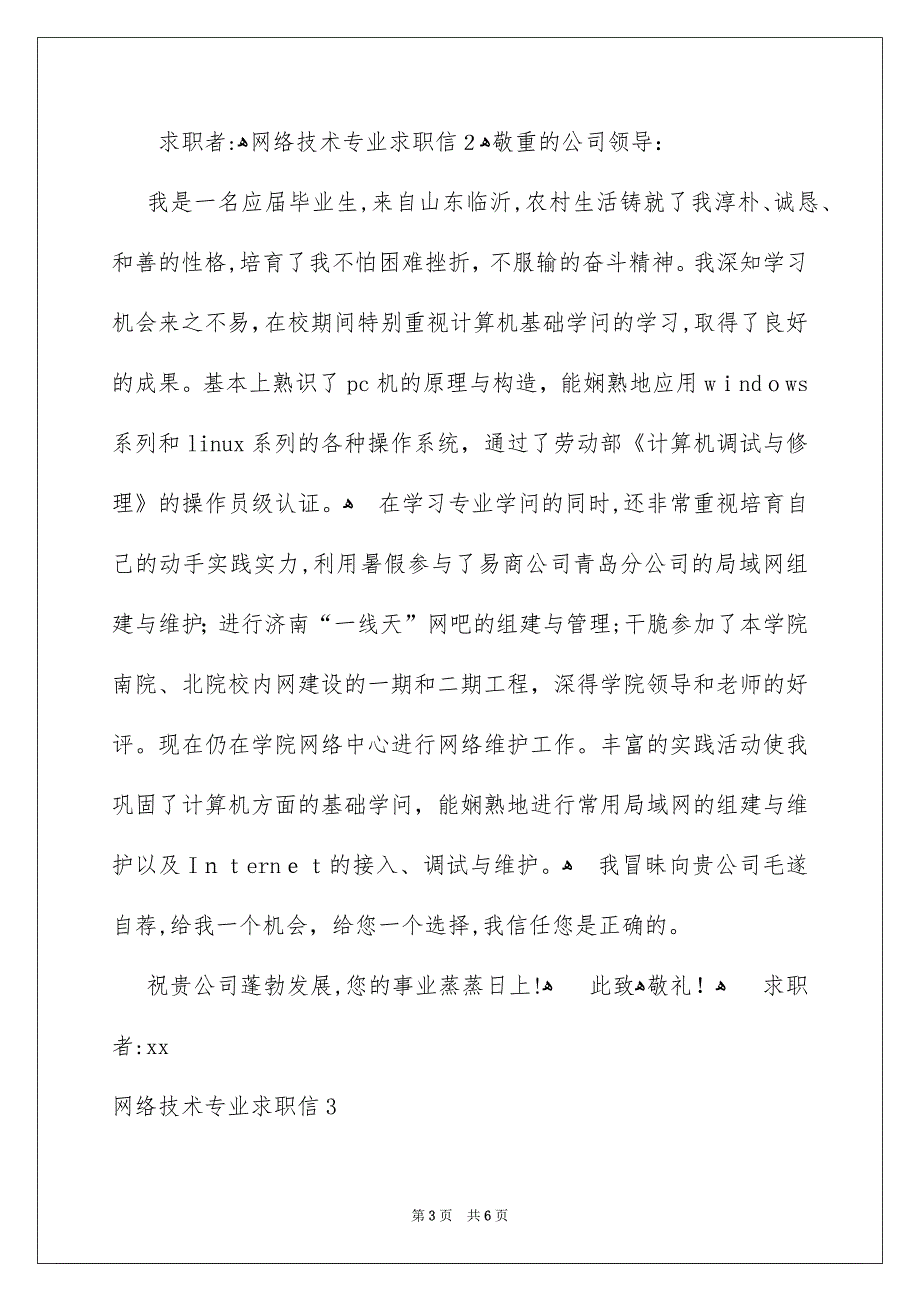 求职者:ﻫ网络技术专业求职信2ﻫ敬重的公司领导：
我是一名应届毕业生,来自山东临沂,农村生活铸就了我淳朴、诚恳、
和善的性格,培育了我不怕困难挫折，不服输的奋斗精神。我深知学习
机会来之不易，在校期间特别重视计算机基础学问的学习,取得了良好
的成果。基本上熟识了pc机的原理与构造，能娴熟地应用windows
系列和linux系列的各种操作系统，通过了劳动部《计算机调试与修
理》的操作员级认证。ﻫ 在学习专业学问的同时,还非常重视培育自
己的动手实践实力,利用暑假参与了易商公司青岛分公司的局域网组
建与维护；进行济南“一线天”网吧的组建与管理;干脆参加了本学院
南院、北院校内网建设的一期和二期工程，深得学院领导和老师的好
评。现在仍在学院网络中心进行网络维护工作。丰富的实践活动使我
巩固了计算机方面的基础学问，能娴熟地进行常用局域网的组建与维
护以及Internet的接入、调试与维护。ﻫ 我冒昧向贵公司毛遂
自荐,给我一个机会，给您一个选择,我信任您是正确的。
祝贵公司蓬勃发展,您的事业蒸蒸日上!ﻫ 此致ﻫ敬礼！ﻫ 求职
者:xx
网络技术专业求职信3
第3页 共6页